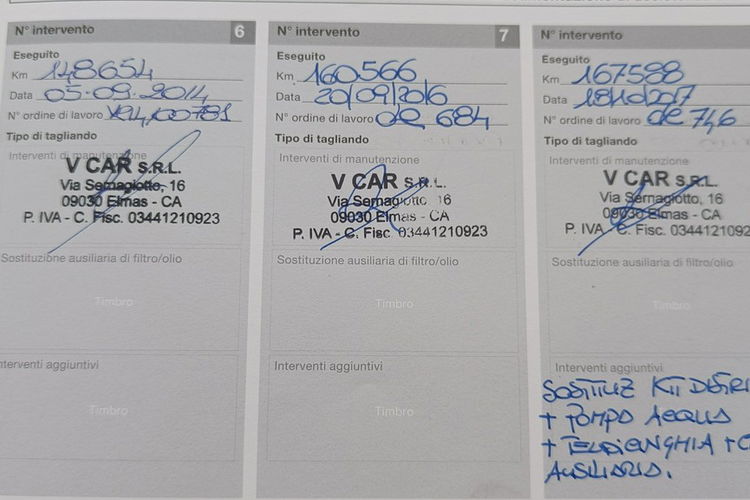 N° intervento 6
Eseguito
Km 148654
Data 05.09.2014
N° ordine di lavoro
Tipo di tagliando
Interventi di manutenzione
V CAR S.R.L.
Via Sernagiotto, 16
09030 Elmas - CA
P. IVA - C. Fisc. 03441210923
Sostituzione ausiliaria di filtro/olio
Timbro
nterventi aggiuntivi
Timbro
N° intervento 7
Eseguito
Km 160566
Data 20/09/2016
N° ordine di lavoro de 684
Tipo di tagliando
Interventi di manutenzione
V CAR S.R.L.
Via Sernagiotto 16
09030 Elmas - CA
P. IVA - C. Fisc. 03441210923
Sostituzione ausiliaria di filtro/olio
Timbro
Interventi aggiuntivi
Timbro
N° intervento
Eseguito
Km 167588
Data 18/10/2017
N° ordine di lavoro de 746
Tipo di tagliando
Interventi di manutenzione
V CAR S.R.L.
Via Sernagiotto, 16
09030 Elmas - CA
P. IVA - C. Fisc. 0344121092
Sostituzione ausiliaria di filtro/olio
Timbro
Interventi aggiuntivi
SOSTITUZ KIT DISTRI
+ POMPA ACQUA
+ TENDICINGHIA + C
AUSILIARIA.